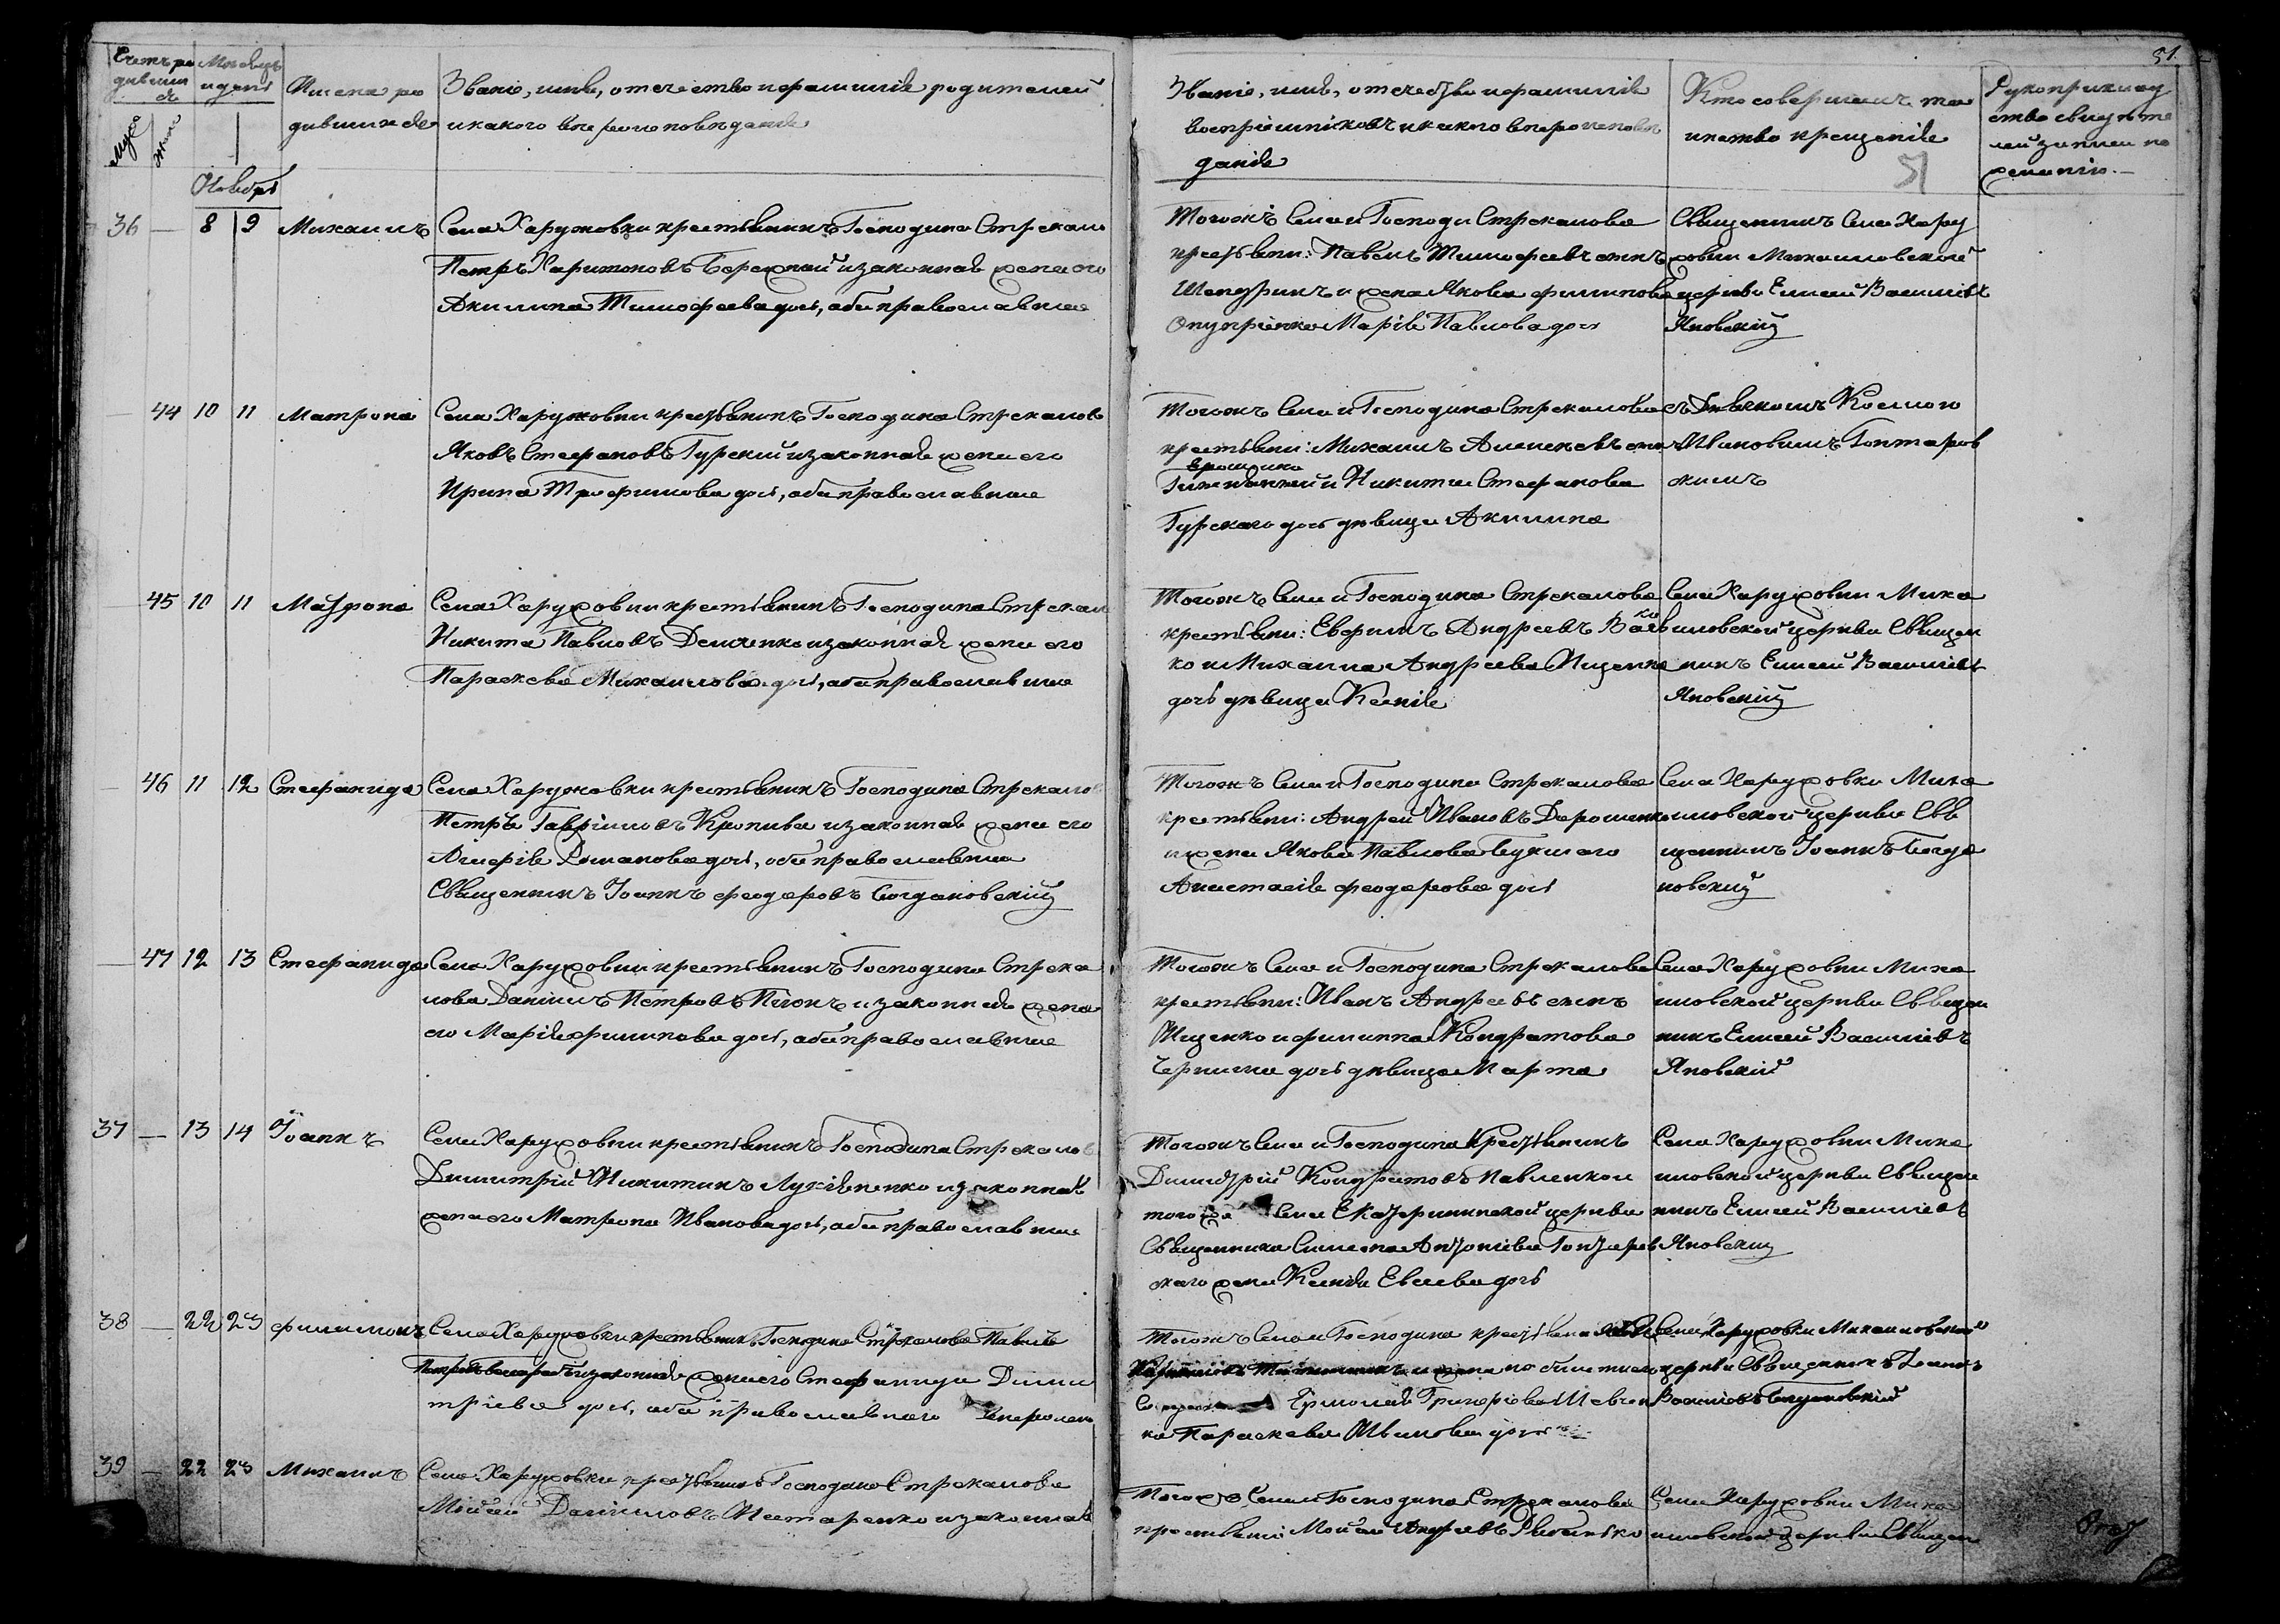 51.
Счетъ ро
дивших
ся
Муж.
Жен.
Месяцъ
и день
Имена ро
дившихся
Званіе, имя, отечество и фамилія родителей
и какого вероисповеданія
Званіе, имя, отечество и фамилія
воспріемниковъ и какого вероисповѣ
данія
Кто совершилъ та
инство крещенія
51
Рукоприклад
ство свидѣте
лей записи по
желанію.—
Ноябрь
36 — 8 9 Михаилъ
Села Харужовки крестьянинъ Господина Стрекало
Петръ Харитоновъ Бережной и законная жена его
Акилина Тимофеева дочь, оба православные
Тогожъ Села и Господи Стрекалова
крестьяни: Павелъ Тимофеевъ сынъ
Шендрикъ и жена Якова Филипова
Опупріенка Марія Павлова дочь
Священникъ Села Хару
жовки Михаиловской
церкви Елисей Василіевъ
Яновскій
— 44 10 11 Матрона
Села Харужовки крестьянинъ Господина Стрекалов
Яковъ Стефановъ Гурскій и законная жена его
Ирина Трофимова дочь, оба православные
Тогожъ Села и Господина Стрекалова
крестьяни: Михаилъ Алексеевъ сынъ
и Никиты Стефанова
Гурскаго дочь дѣвица Акилина
съ Дьячкомъ Космою
Ивановимъ Гонтаров
скимъ
— 45 10 11 Матрона
Села Харужовки крестьянинъ Господина Стрекал
Никита Павловъ Демченко и законная жена его
Параскева Михаилова дочь, оба православные
Тогожъ Села и Господина Стрекалова
крестьяни: Евфимъ Андреевъ
ко и Михаила Андреева Ищенка
дочь дѣвица Ксенія
Села Харужовки Миха
иловской церкви Священ
никъ Елисей Василіевъ
Яновскій
— 46 11 12 Стефанида
Села Харужовки крестьянинъ Господина Стрекало
Петръ Гавріиловъ Кропива и законная жена его
Гликерія Романова дочь, оба православные
Священникъ Іоаннъ Феодоровъ Богдановскій
Тогожъ Села и Господина Стрекалова
крестьяни: Андрей Ивановъ Дорошенко
и жена Якова Павлова Буцкаго
Анастасія Феодорова дочь
Села Харужовки Миха
иловской церкви Свя
щенникъ Іоаннъ Богда
новскій
— 47 12 13 Стефанида
Села Харужовки крестьянинъ Господина Стрека
лова Даніилъ Петровъ Пѣгокъ и законная жена
его Марія Филипова дочь, оба православные
Тогожъ Села и Господина Стрекалова
крестьяни: Иванъ Андреевъ сынъ
Ищенко и Филиппа Кондратова
Черныша дочь дѣвица Марта
Села Харужовки Миха
иловской церкви Священ
никъ Елисей Василіевъ
Яновскій
37 — 13 14 Іоаннъ
Села Харужовки крестьянинъ Господина Стрекалов
Димитрій Никитинъ Лукіяненко и законная
жена его Матрона Иванова дочь, оба православные
Тогожъ Села и Господина Крестьянинъ
Димитрій Кондратовъ Павленко и
того же Села Екатерининской церкви
Священника Симеона Антоніева Гонтаров
скаго жена Ксенія Евсеева дочь
Села Харужовки Миха
иловской церкви Священ
никъ Елисей Василіевъ
Яновскій
38 — 22 23 Филимонъ
Села Харужовки крестьянинъ Господина Стрекалова Павелъ
и законная жена его Стефанида Дими
тріева дочь, оба православного вероиспо
Тогожъ Села и Господина крестьяни
Ермолая Григоріева Шевчен
ка Параскева Иванова дочь
Села Харужовки Михаиловской
церкви Священникъ Іоаннъ
Василіевъ Богдановскій
39 — 22 23 Михаилъ
Села Харужовки крестьянинъ Господина Стрекалова
Моисей Даніиловъ Нестаренко и законная
Тогожъ Села и Господина Стрекалова
крестьяни: Мойсей Андреевъ
Села Харужовки Миха
иловской церкви Священ